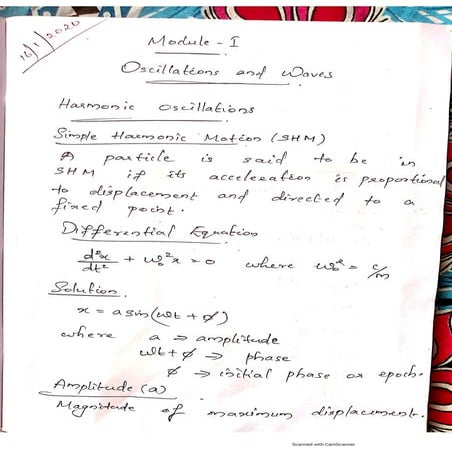 16/1/2020
Module - I
Oscillations and Waves
Harmonic Oscillations
Simple Harmonic Motion (SHM)
A particle is said to be in
SHM if its acceleration is proportional
to displacement and directed to a
fixed point.
Differential Equation
d²x/dt² + ω₀²x = 0 where ω₀² = c/m
Solution.
x = a sin(ωt + ϕ)
where a → amplitude
ωt + ϕ → phase
ϕ → initial phase or epoch.
Amplitude (a)
Magnitude of maximum displacement.
Scanned with CamScanner